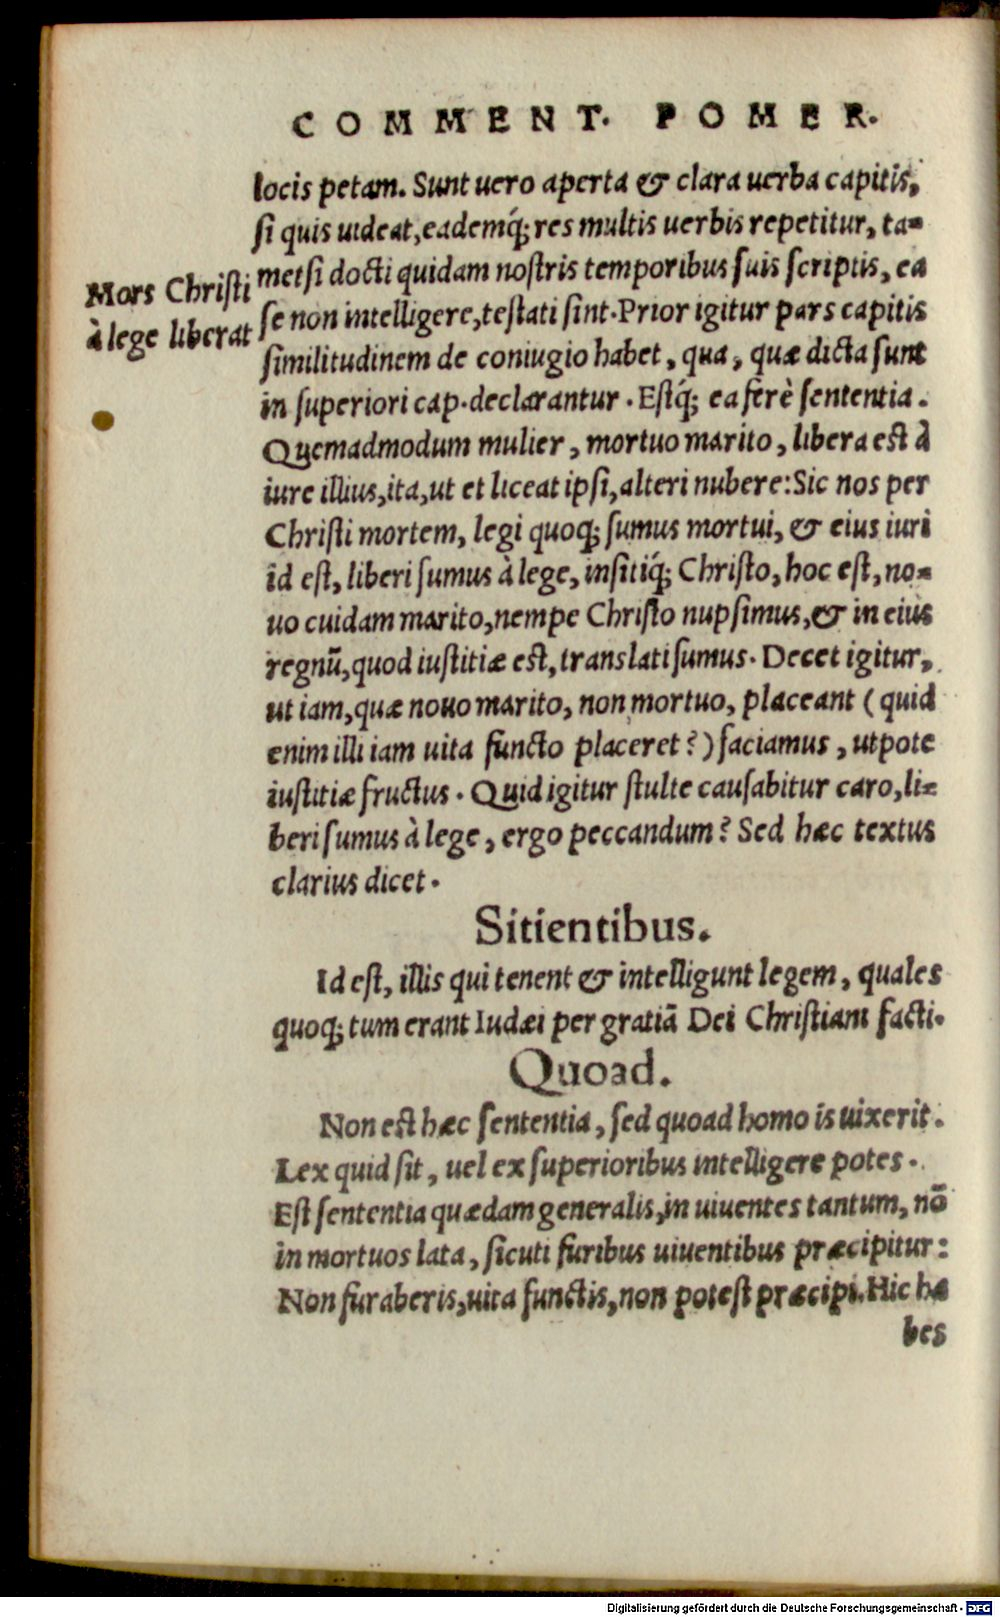 COMMENT. POMER.
locis petam. Sunt uero aperta & clara uerba capitis,
si quis uideat, eademq́; res multis uerbis repetitur, ta-
metsi docti quidam nostris temporibus suis scriptis, ea
se non intelligere, testati sint. Prior igitur pars capitis
similitudinem de coniugio habet, qua, quæ dicta sunt
in superiori cap. declarantur. Estq́; ea ferè sententia.
Quemadmodum mulier, mortuo marito, libera est à
iure illius, ita, ut et liceat ipsi, alteri nubere: Sic nos per
Christi mortem, legi quoq; sumus mortui, & eius iuri
id est, liberi sumus à lege, insitiq́; Christo, hoc est, no-
uo cuidam marito, nempe Christo nupsimus, & in eius
regnū, quod iustitiæ est, translati sumus. Decet igitur,
ut iam, quæ nouo marito, non mortuo, placeant (quid
enim illi iam uita functo placeret?) faciamus, utpote
iustitiæ fructus. Quid igitur stulte causabitur caro, li-
beri sumus à lege, ergo peccandum? Sed hæc textus
clarius dicet.
Mors Christi
à lege liberat
Sitientibus.
Id est, illis qui tenent & intelligunt legem, quales
quoq; tum erant Iudæi per gratiā Dei Christiani facti.
Quoad.
Non est hæc sententia, sed quoad homo is uixerit.
Lex quid sit, uel ex superioribus intelligere potes.
Est sententia quædam generalis, in uiuentes tantum, nō
in mortuos lata, sicuti furibus uiuentibus præcipitur:
Non furaberis, uita functis, non potest præcipi. Hic ha
bes
Digitalisierung gefördert durch die Deutsche Forschungsgemeinschaft - DFG